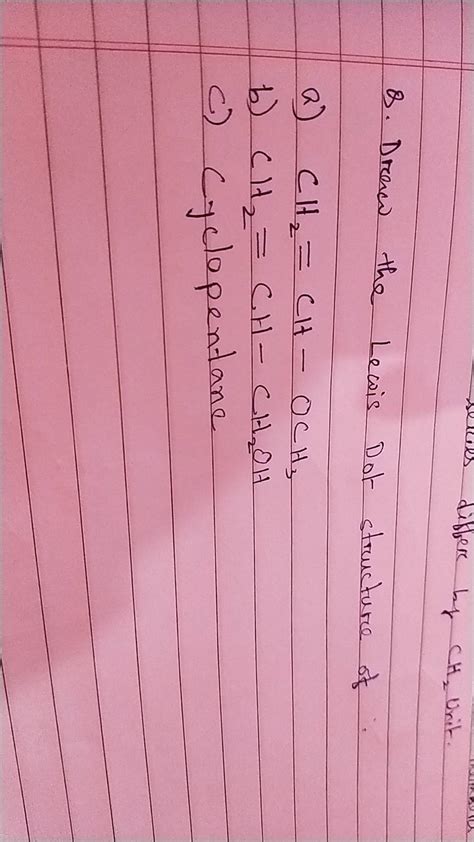 differ by CH₂ Unit.
Q. Draw the Lewis Dot structure of :
a) CH₂ = CH - OCH₃
b) CH₂ = CH - CH₂OH
c) Cyclopentane